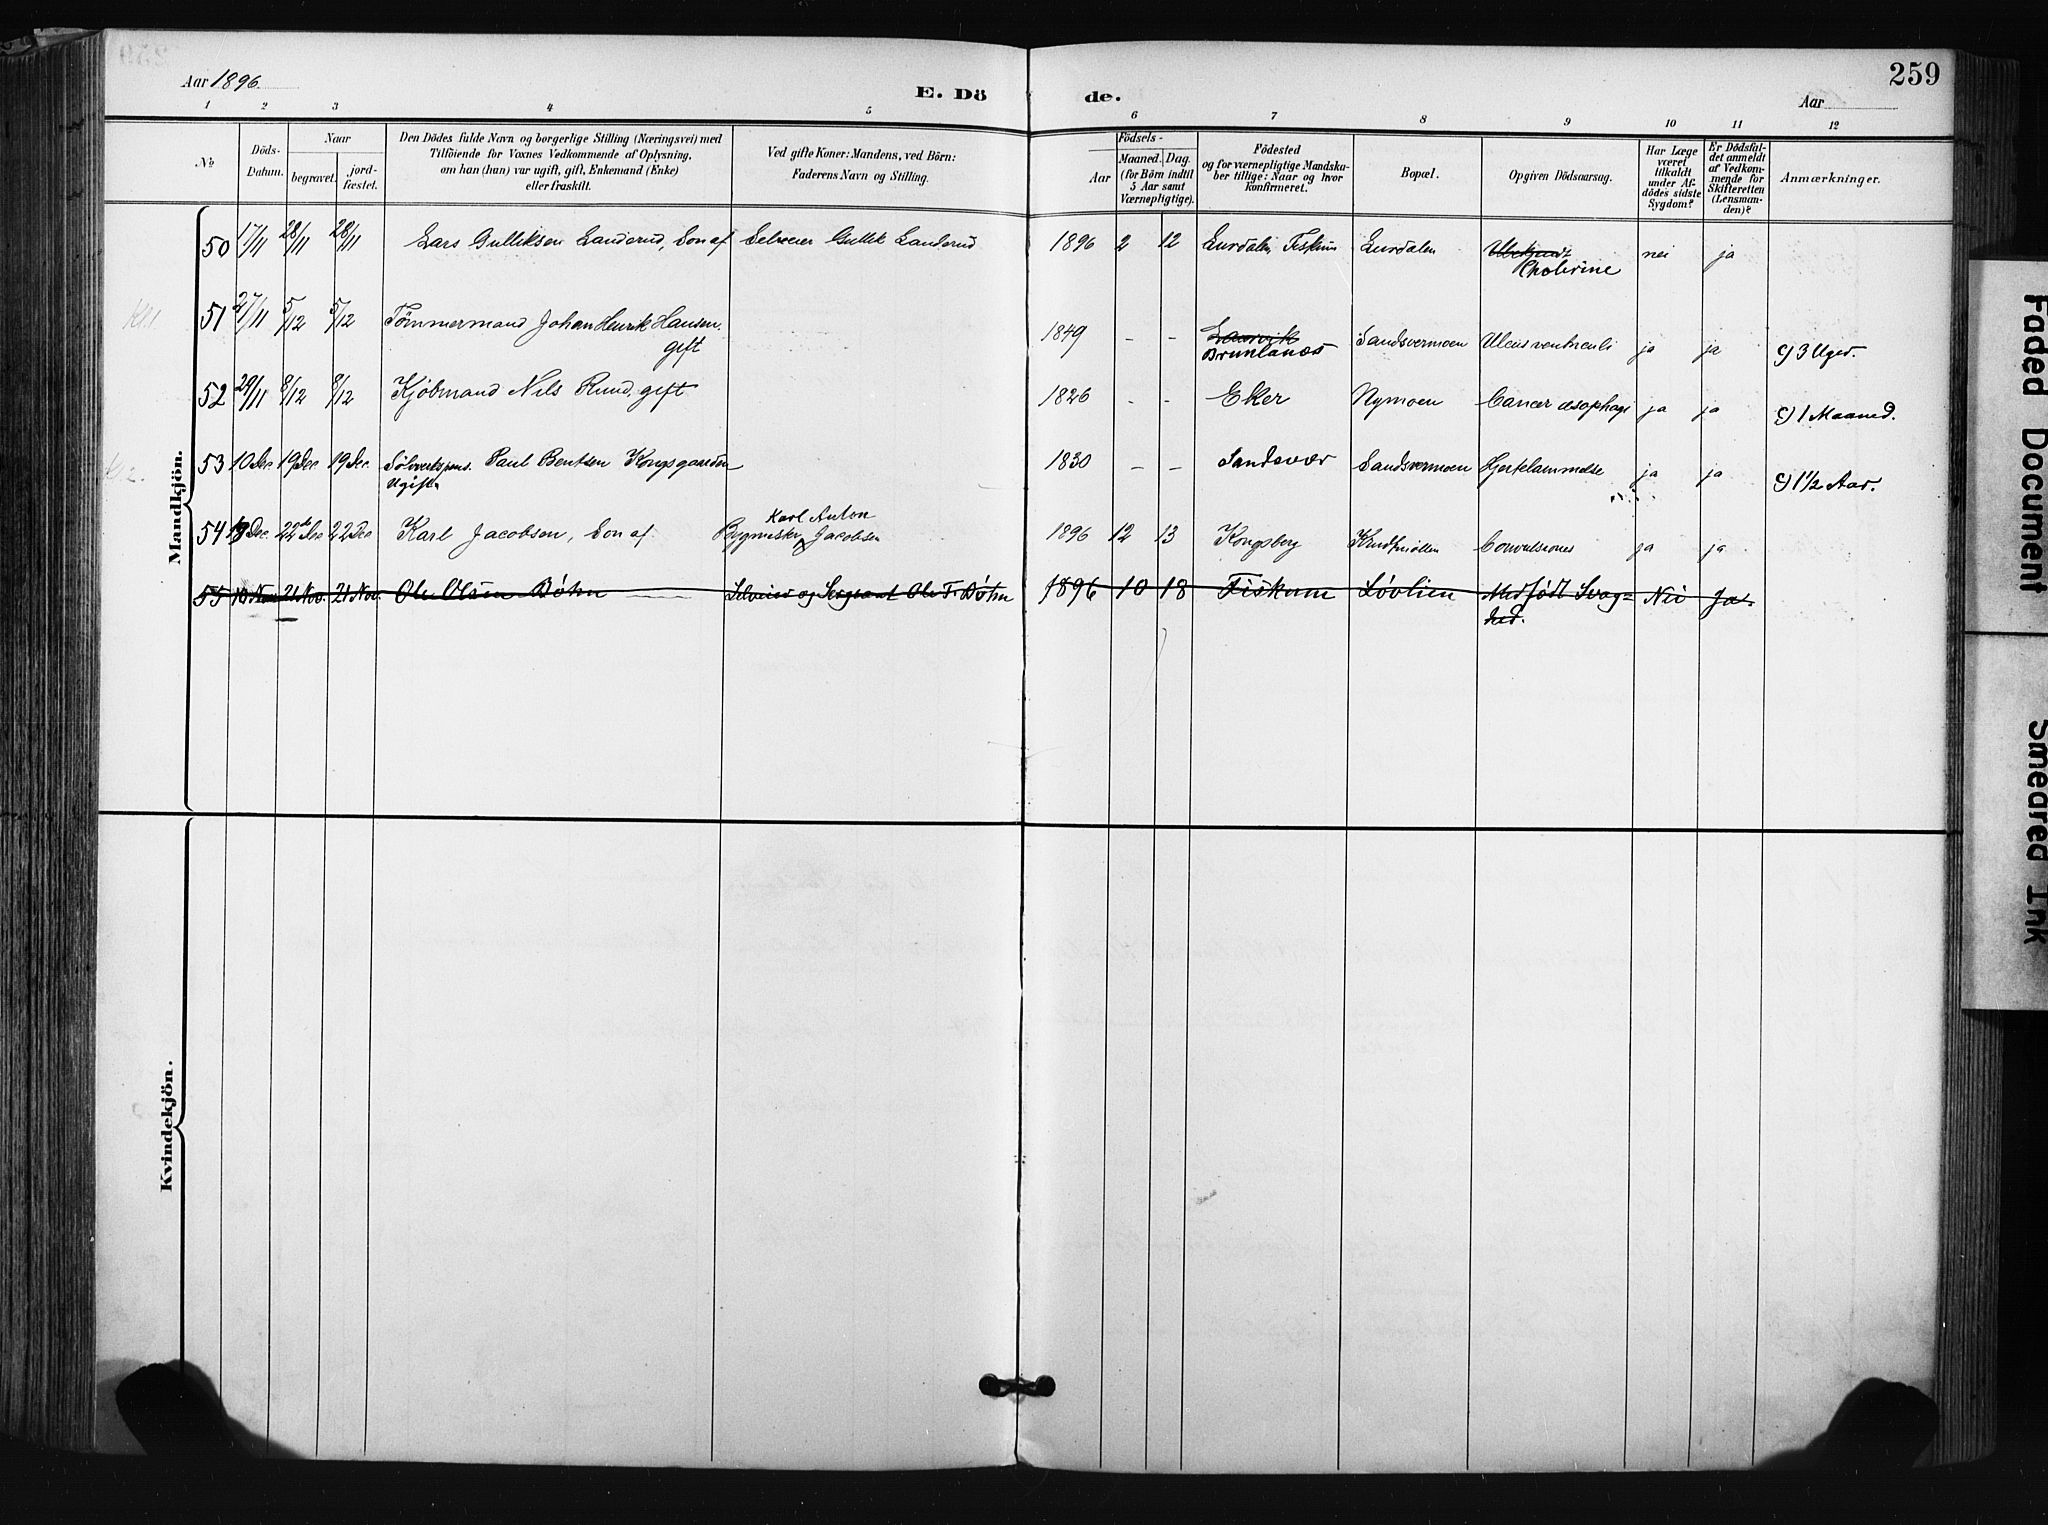 259
Aar 1896
E. Dö de.
Aar
1 2 3 4 5 6 7 8 9 10 11 12
No
Döds-
Datum.
Naar
begravet.
jord-
fæstet.
Den Dödes fulde Navn og borgerlige Stilling (Næringsvei) med
Tilföiende for Voxnes Vedkommende af Oplysning,
om han (hun) var ugift, gift, Enkemand (Enke)
eller fraskilt.
Ved gifte Koner: Mandens, ved Börn:
Faderens Navn og Stilling.
Födsels-
Aar
Maaned. Dag.
(for Börn indtil
5 Aar samt
Værnepligtige).
Födested
og for værnepligtige Mandska-
ber tillige: Naar og hvor
konfirmeret.
Bopæl.
Opgiven Dödsaarsag.
Har Læge
været
tilkaldt
under Af-
dödes sidste
Sygdom?
Er Dödsfal-
det anmeldt
af Vedkom-
mende for
Skifteretten
(Lensman-
den)?
Anmærkninger.
Mandkjön.
50 17/11 28/11 28/11 Lars Gulliksen Landerud, Son af Selveier Gullik Landerud 1896 2 12 Lurdalen Fiskum Lurdalen Ubekjendt nei ja
Cholerine
51 27/11 5/12 5/12 Tømmermand Johan Henrik Hansen, 1849 - - Laurvik Sandsvermoen Ulcus ventriculi ja ja c) 3 Uger.
gift Brunlanæs
52 29/11 8/12 8/12 Kjøbmand Nils Ruud, gift 1826 - - Eker Nymoen Cancer æsophagi ja ja c) 1 Maaned.
53 10 Dec 19 Dec 19 Dec. Sølvverkspens. Paul Bentsen Kongsgaarden 1830 - - Sandsvær Sandsvermoen Hjertelammelse ja ja c) 1 1/2 Aar.
Ugift
Karl Anton
54 18 Dec. 22de Dec 22 Dec Karl Jacobsen, Son af Bygmester Jacobsen 1896 12 13 Kongsberg Krudtmøllen Convulsiones ja ja
55 10 Nov 21 Nov. 21 Nov. Ole Olsen Bøhn Selveier og Sergeant Ole T. Bøhn 1896 10 18 Fiskum Løvlien Medfødt Svag- Nei Ja.
hed.
Kvindekjön.
Faded Document
Smeared Ink